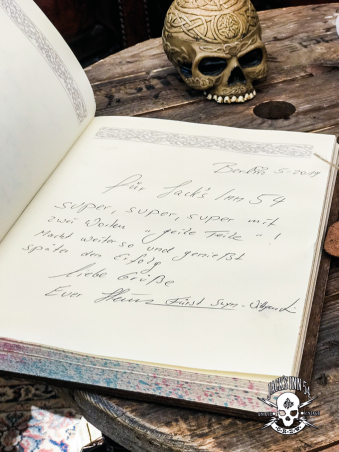 5-2019
für Jack's Inn 54
super, super, super mit
zwei Worten "geile Feile"!
Macht weiter so und genießt
später den Erfolg
Liebe Grüße
Euer Heinz Fürst
JACK'S INN 54